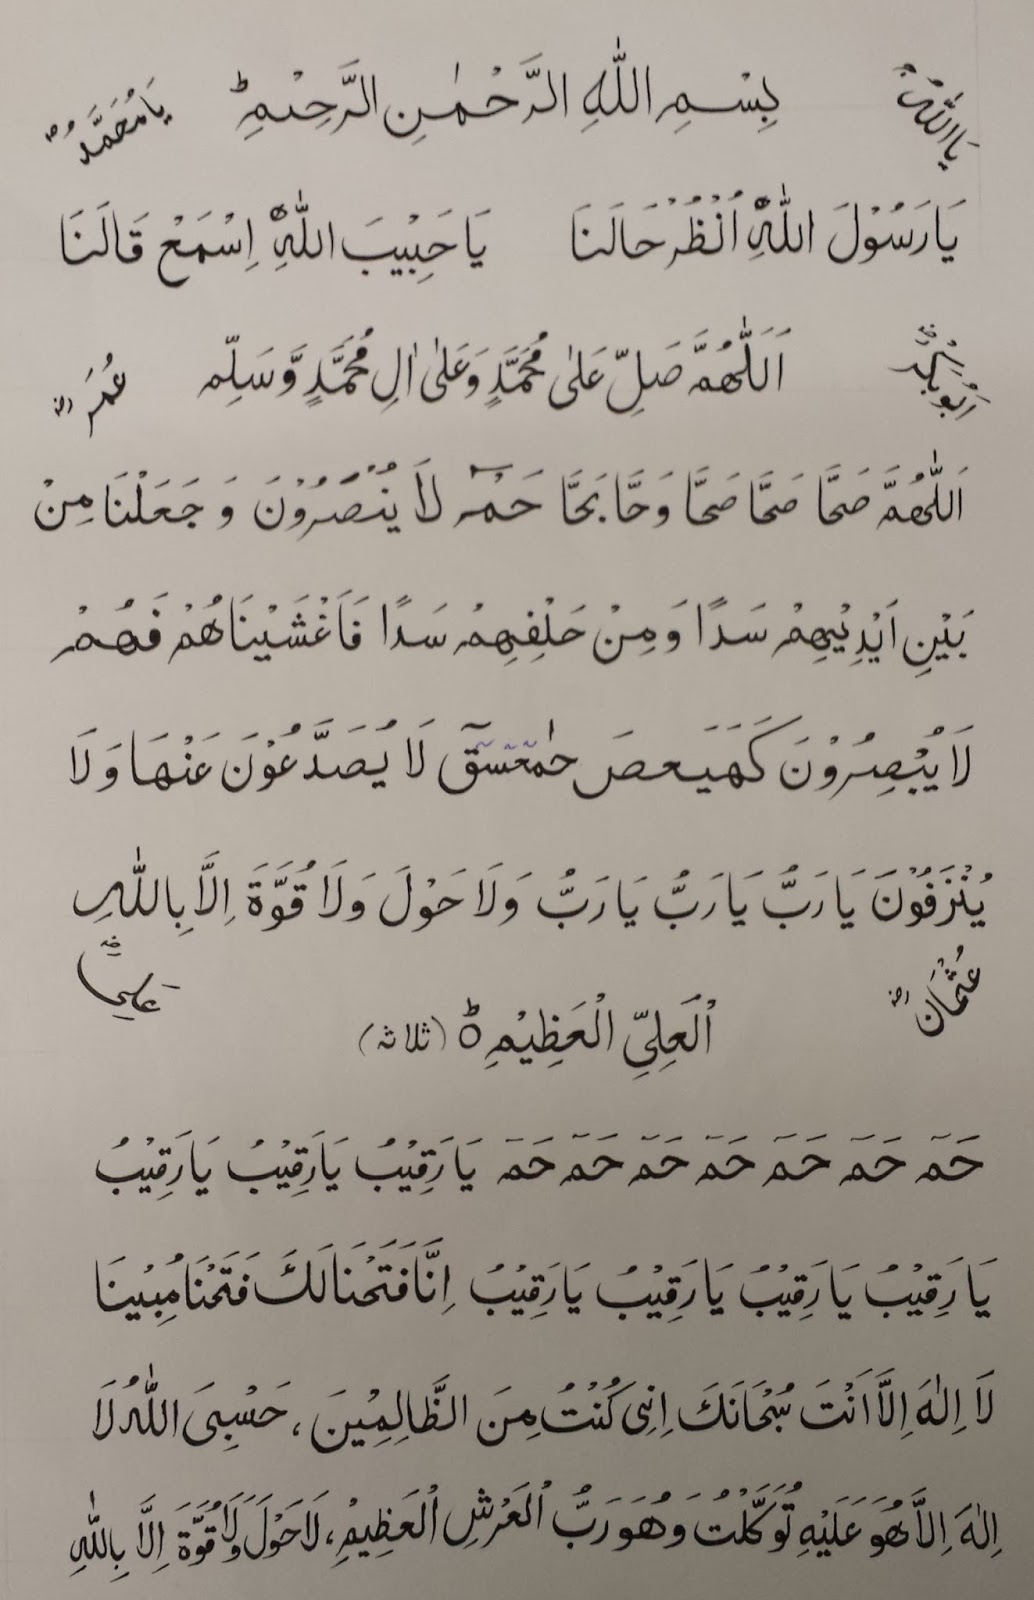 يَا اَللّٰهُ بِسْمِ اللّٰهِ الرَّحْمٰنِ الرَّحِيْمِ ؕ يَا مُحَمَّدُ ؐ
يَا رَسُوْلَ اللّٰهِ اُنْظُرْ حَالَنَا يَا حَبِيْبَ اللّٰهِ اِسْمَعْ قَالَنَا
اَبُوبَكْر ؓ اَللّٰهُمَّ صَلِّ عَلٰى مُحَمَّدٍ وَعَلٰى اٰلِ مُحَمَّدٍ وَّسَلِّمْ عُمَر ؓ
اَللّٰهُمَّ صَحًّا صَحًّا صَحًّا وَحًّا بَحًّا حٰمٓ لَا يُنْصَرُوْنَ وَ جَعَلْنَا مِنْ
بَيْنِ اَيْدِيْهِمْ سَدًا وَمِنْ خَلْفِهِمْ سَدًا فَاَغْشَيْنَاهُمْ فَهُمْ
لَا يُبْصِرُوْنَ كَهَيَعصَ حٰمٓعٓسٓقٓ لَا يُصَدَّعُوْنَ عَنْهَا وَلَا
يُنْزَفُوْنَ يَا رَبُّ يَا رَبُّ يَا رَبُّ وَلَا حَوْلَ وَلَا قُوَّةَ اِلَّا بِاللّٰهِ
عُثْمَان ؓ اْلعَلِيِّ الْعَظِيْمِ ؕ (ثلاثہ) عَلِي ؓ
حَمٓ حَمٓ حَمٓ حَمٓ حَمٓ حَمٓ حَمٓ يَا رَقِيْبُ يَا رَقِيْبُ يَا رَقِيْبُ
يَا رَقِيْبُ يَا رَقِيْبُ يَا رَقِيْبُ يَا رَقِيْبُ اِنَّا فَتَحْنَا لَكَ فَتَحْنَا مُبِيْنَا
لَا اِلٰهَ اِلَّا اَنْتَ سُبْحَانَكَ اِنِى كُنْتُ مِنَ الظَّالِمِيْنَ ، حَسْبِىَ اللّٰهُ لَا
اِلٰهَ اِلَّا هُوَ عَلَيْهِ تُوَكَّلْتُ وَهُوَ رَبُّ الْعَرْشِ الْعَظِيْمِ ، لَا حَوْلَ وَلَا قُوَّةَ اِلَّا بِاللّٰهِ